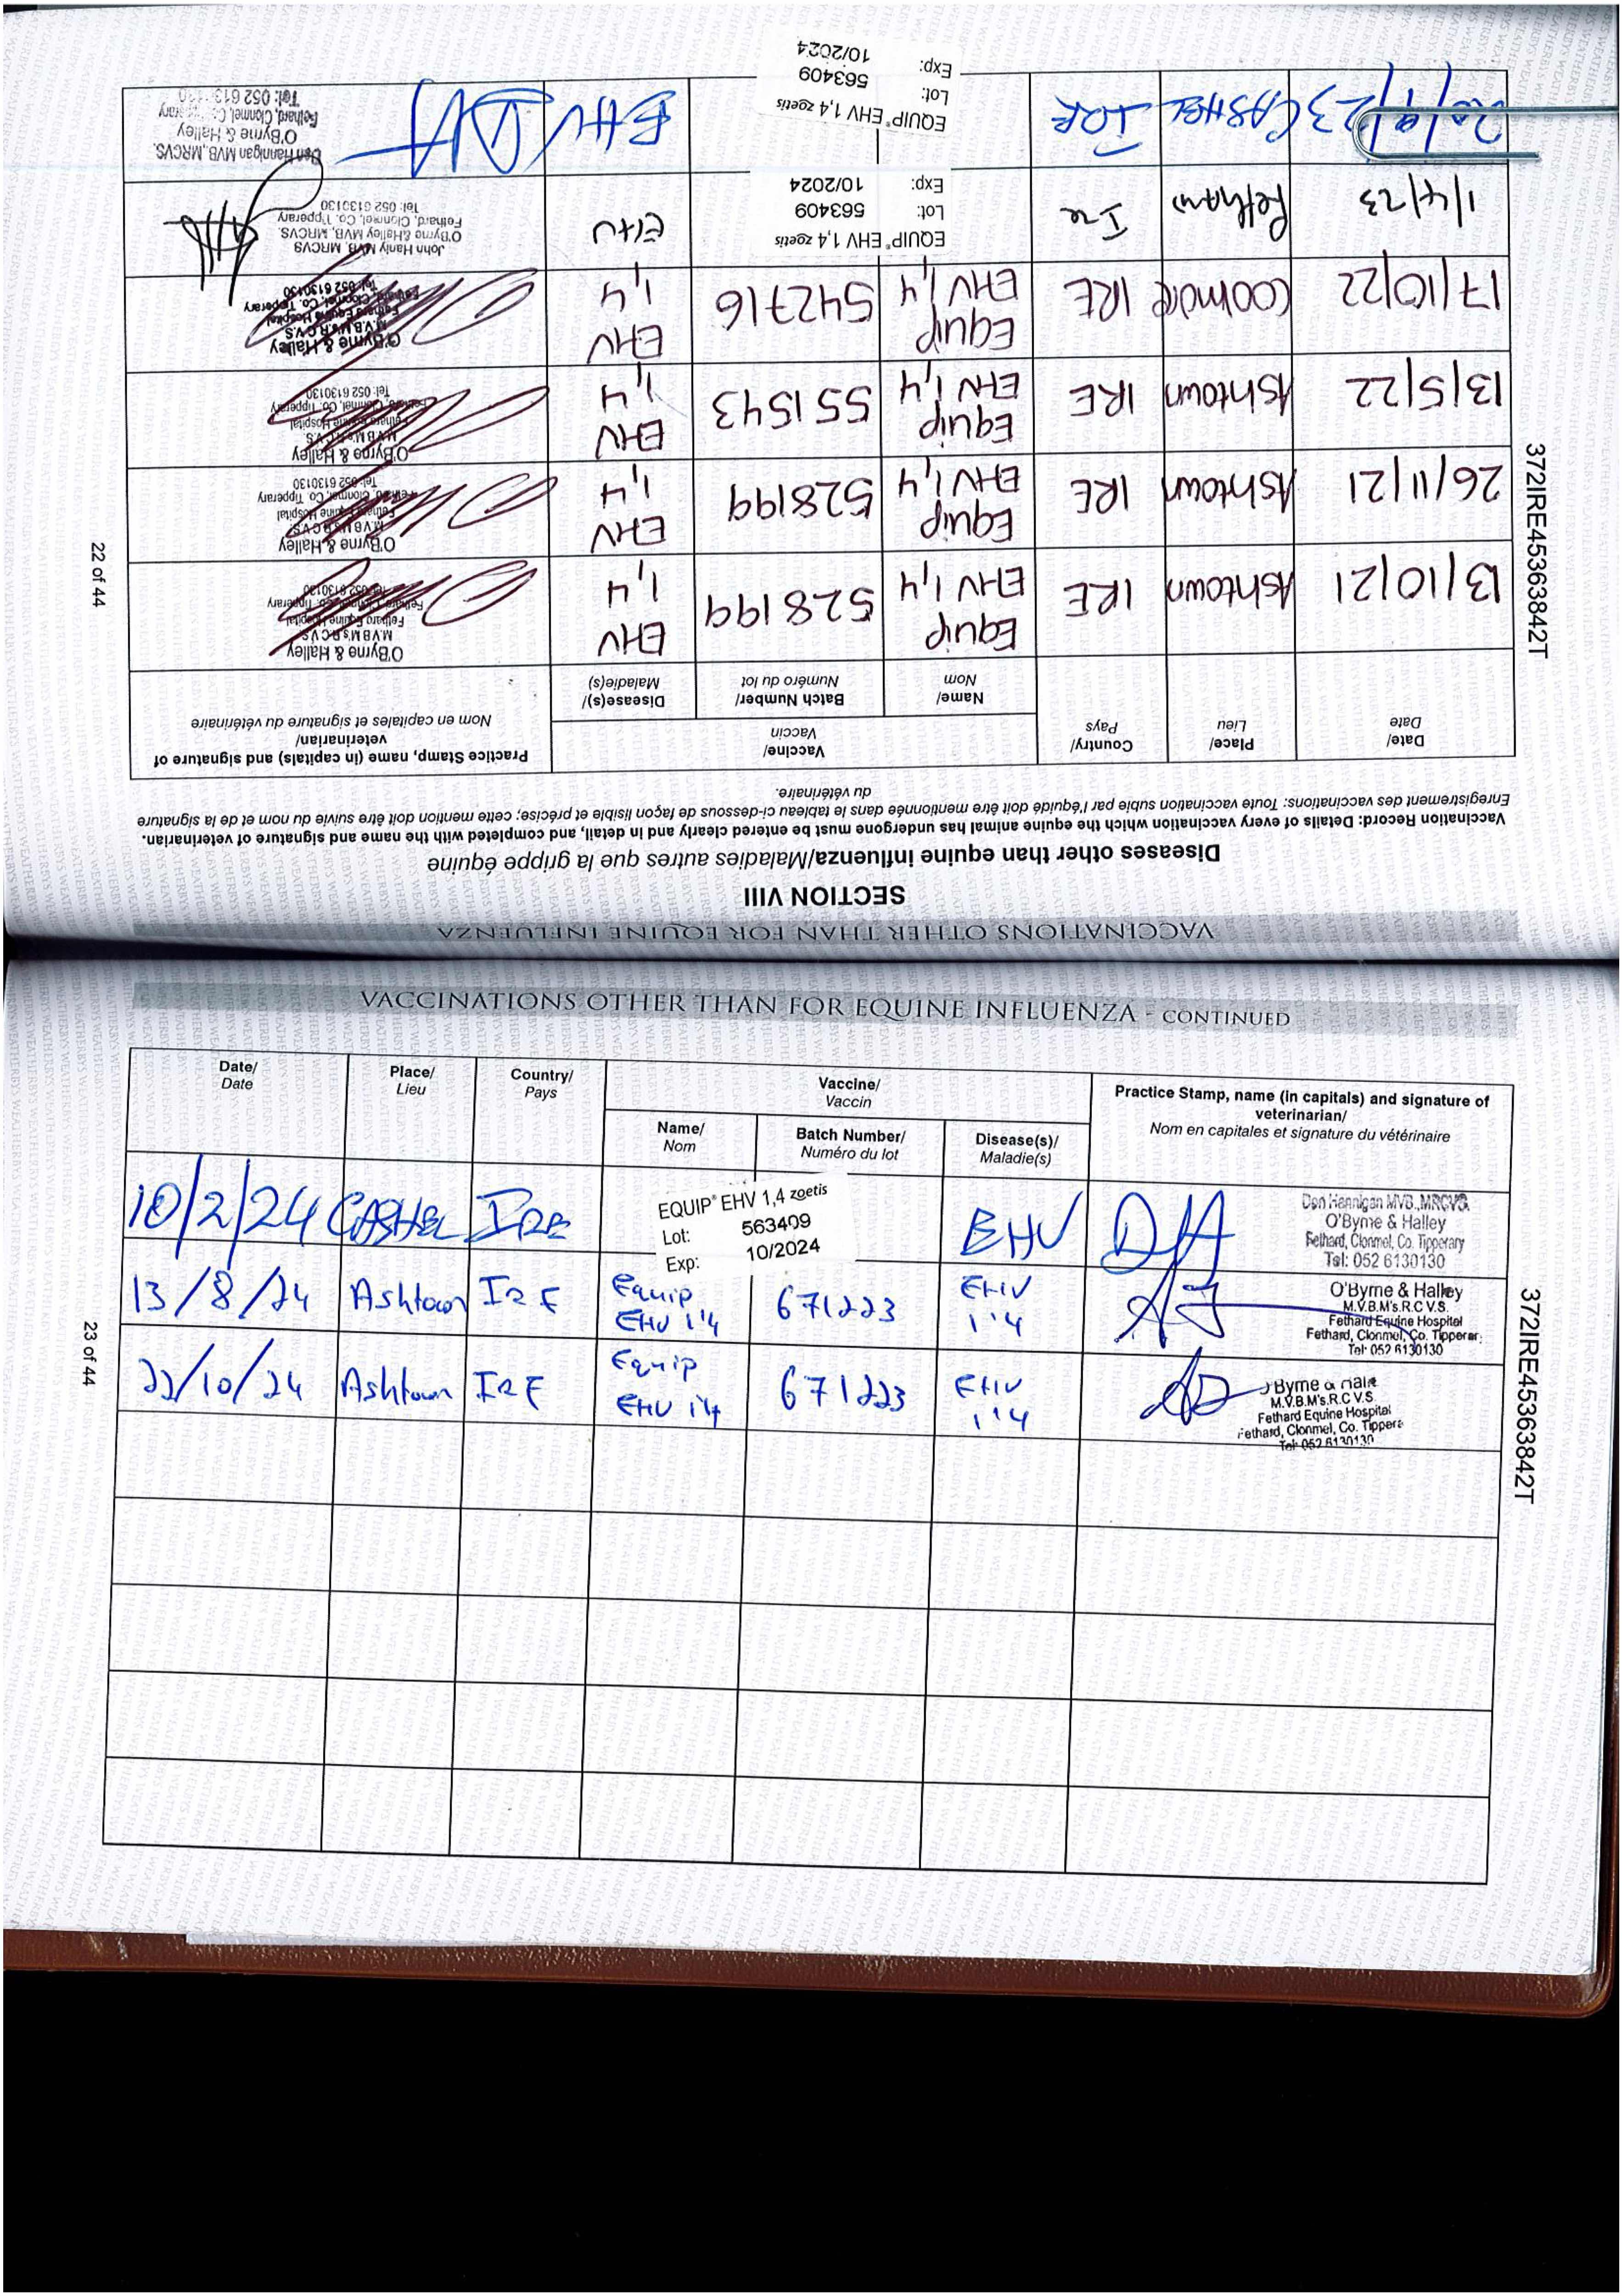 VACCINATIONS OTHER THAN FOR EQUINE INFLUENZA
SECTION VIII
Diseases other than equine influenza/Maladies autres que la grippe équine
Vaccination Record: Details of every vaccination which the equine animal has undergone must be entered clearly and in detail, and completed with the name and signature of veterinarian.
Enregistrement des vaccinations: Toute vaccination subie par l'équidé doit être mentionnée dans le tableau ci-dessous de façon lisible et précise; cette mention doit être suivie du nom et de la signature
du vétérinaire.
Date/
Date
Place/
Lieu
Country/
Pays
Vaccine/
Vaccin
Name/
Nom
Batch Number/
Numéro du lot
Disease(s)/
Maladie(s)
Practice Stamp, name (in capitals) and signature of
veterinarian/
Nom en capitales et signature du vétérinaire
13/10/21 Ashtown IRE Equip EHV 1,4 528199 EHV 1,4
O'Byrne & Halley
M.V.B M's R C V S
Fethard Equine Hospital
Fethard, Clonmel, Co. Tipperary
Tel: 052 6130130
26/11/21 Ashtown IRE Equip EHV 1,4 528199 EHV 1,4
O'Byrne & Halley
M.V.B M's R C V S
Fethard Equine Hospital
Fethard, Clonmel, Co. Tipperary
Tel: 052 6130130
13/5/22 Ashtown IRE Equip EHV 1,4 551543 EHV 1,4
O'Byrne & Halley
M.V.B M's R C V.S.
Fethard Equine Hospital
Fethard, Clonmel, Co. Tipperary
Tel: 052 6130130
17/10/22 Coolmore IRE Equip EHV 1,4 542716 EHV 1,4
O'Byrne & Halley
M.V.B M's R C V.S
Fethard Equine Hospital
Fethard, Clonmel, Co. Tipperary
Tel: 052 6130130
1/4/23 Fethard Ire
EQUIP® EHV 1,4 zoetis
Lot: 563409
Exp: 10/2024
EHV
John Hanly MVB, MRCVS
O'Byrne & Halley MVB, MRCVS.
Fethard, Clonmel, Co. Tipperary
Tel: 052 6130130
CASHEL IRE
EQUIP® EHV 1,4 zoetis
Lot: 563409
Exp: 10/2024
EHV
Don Hannigan MVB, MRCVS.
O'Byrne & Halley
Fethard, Clonmel,
Tel: 052 613
372IRE45363842T
22 of 44
VACCINATIONS OTHER THAN FOR EQUINE INFLUENZA - CONTINUED
Date/
Date
Place/
Lieu
Country/
Pays
Vaccine/
Vaccin
Name/
Nom
Batch Number/
Numéro du lot
Disease(s)/
Maladie(s)
Practice Stamp, name (in capitals) and signature of
veterinarian/
Nom en capitales et signature du vétérinaire
10/2/24 CASHEL IRE
EQUIP® EHV 1,4 zoetis
Lot: 563409
Exp: 10/2024
EHV
Don Hannigan MVB., MRCVS.
O'Byrne & Halley
Fethard, Clonmel, Co. Tipperary
Tel: 052 6130130
13/8/24 Ashtown IRE Equip EHV 1'4 671223 EHV 1'4
O'Byrne & Halley
M.V.B.M's.R.C V.S.
Fethard Equine Hospital
Fethard, Clonmel, Co. Tipperar
Tel: 052 6130130
22/10/24 Ashtown IRE Equip EHV 1'4 671223 EHV 1'4
Byrne
M.V.B.M's.R.C V.S.
Fethard Equine Hospital
Fethard, Clonmel, Co. Tippera
Tel: 052 6130130
372IRE45363842T
23 of 44